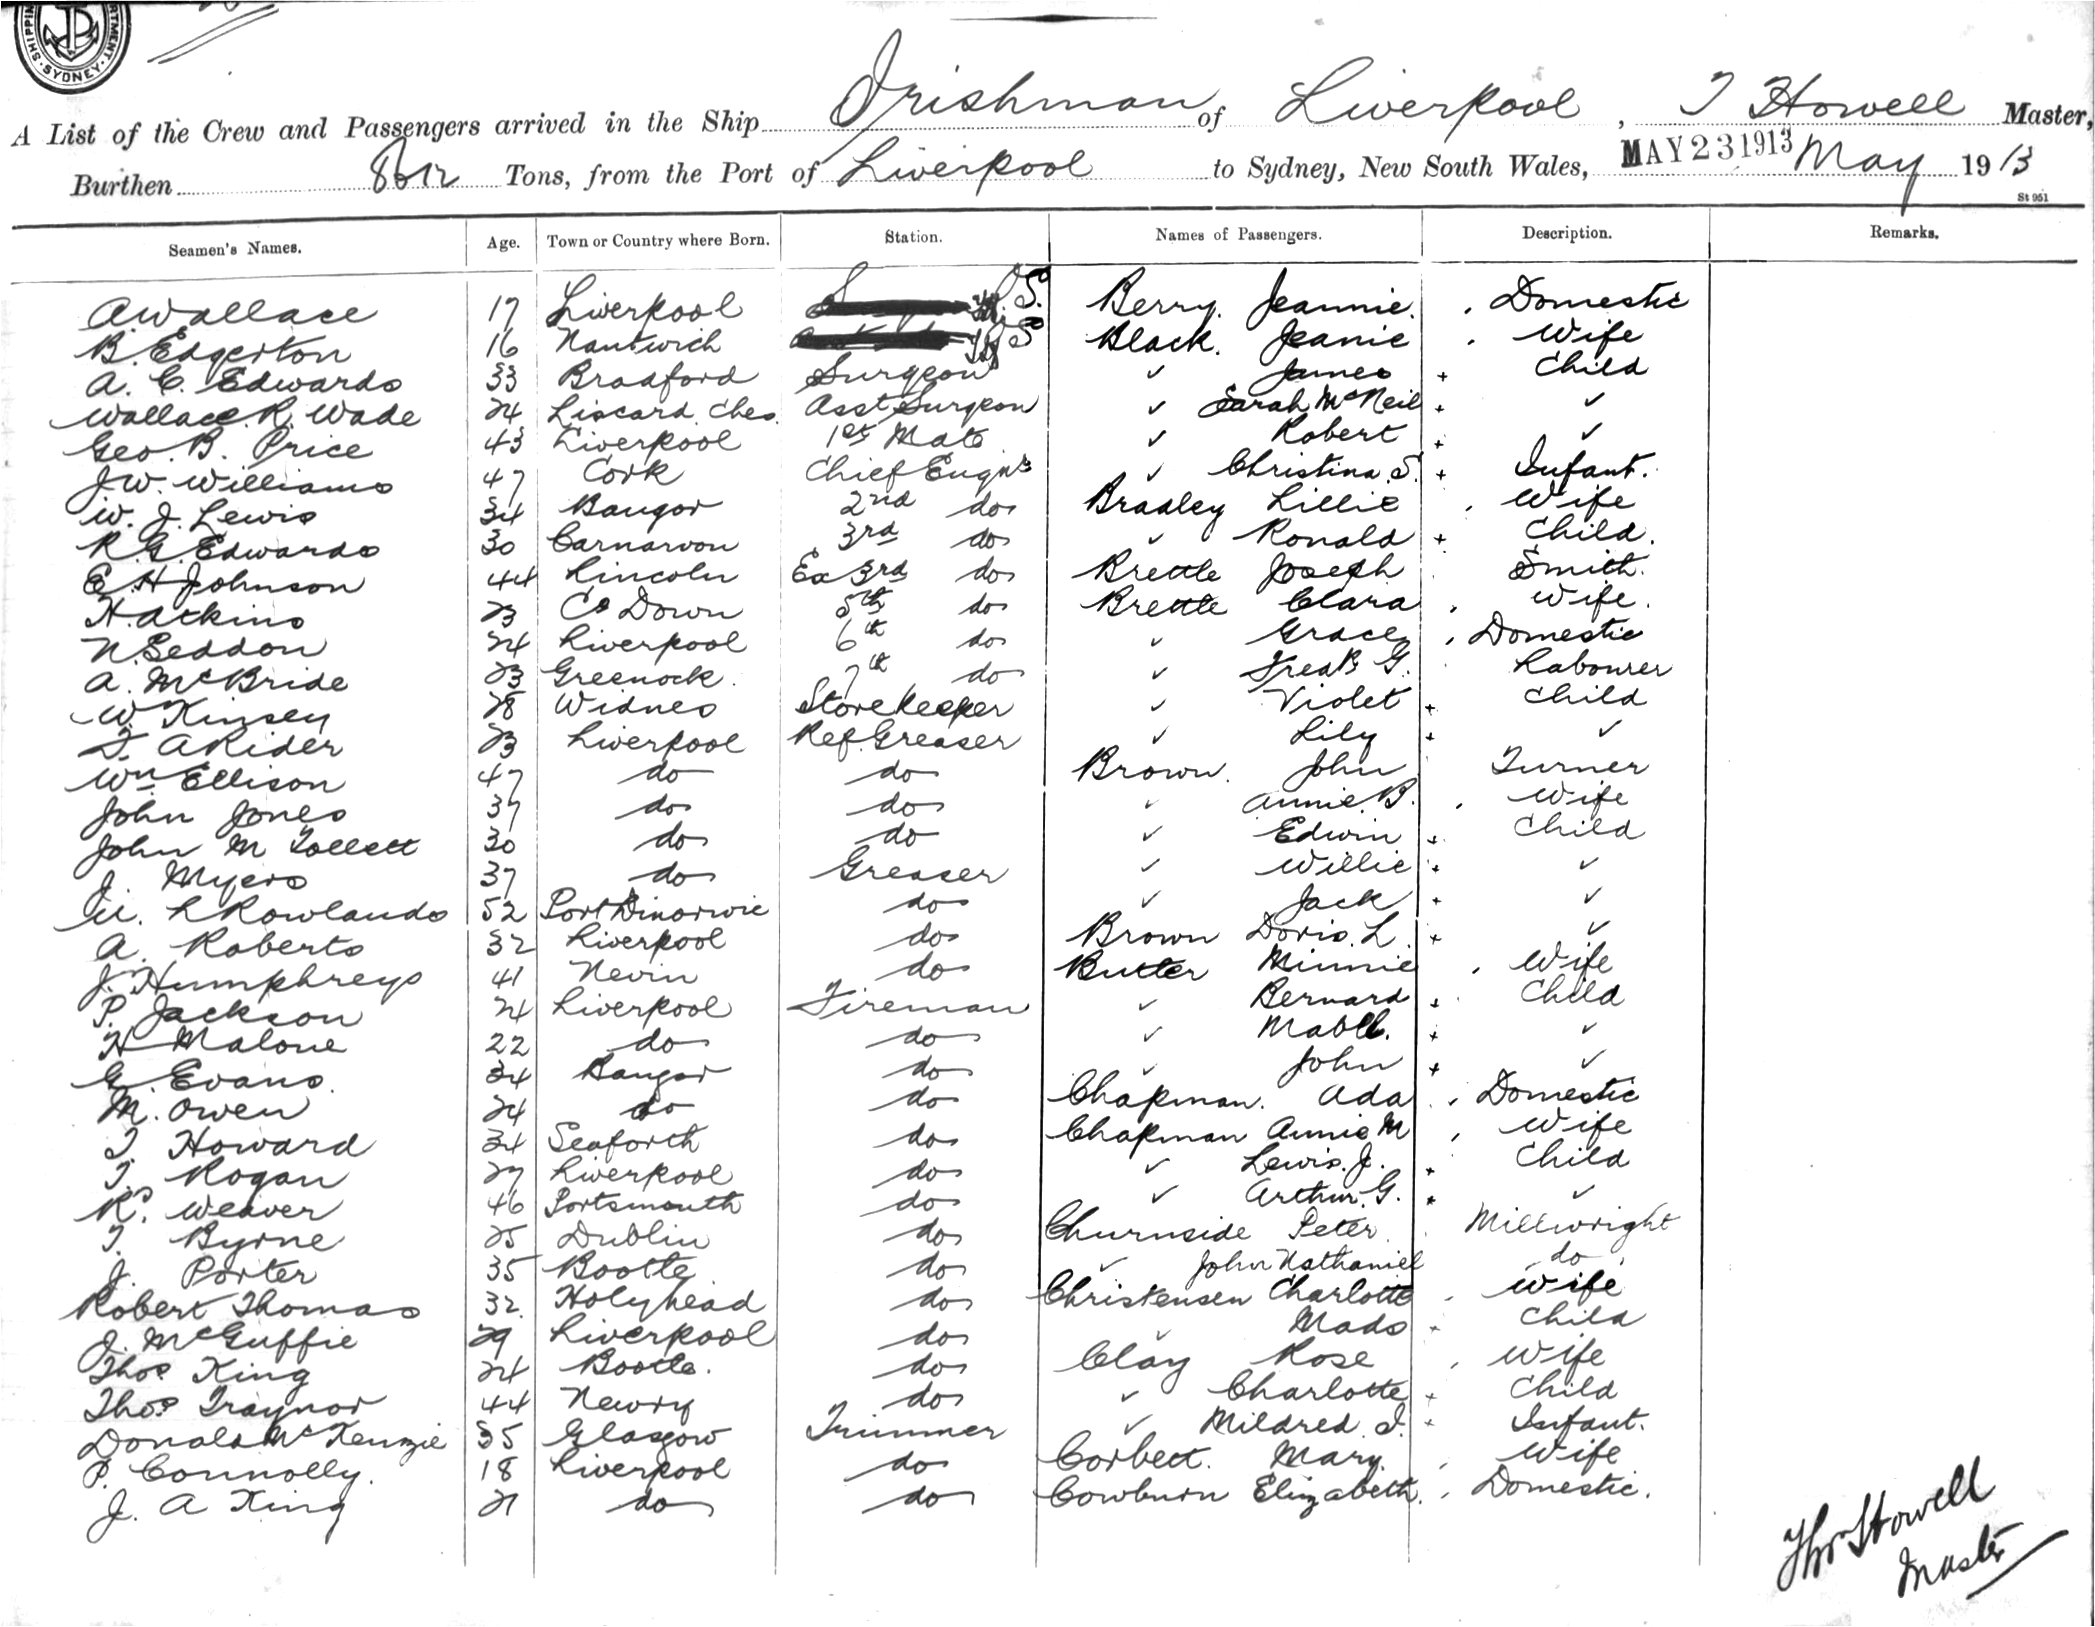 SHIPPING DEPARTMENT. SYDNEY.
A List of the Crew and Passengers arrived in the Ship Irishman of Liverpool, T Howell Master,
Burthen Tons, from the Port of Liverpool to Sydney, New South Wales, MAY 23 1913 May 1913
St 951
Seamen's Names. Age. Town or Country where Born. Station. Names of Passengers. Description. Remarks.
A Wallace 17 Liverpool Berry. Jeannie. Domestic
B. Edgerton 16 Nantwich Black. Jeanie Wife
A. C. Edwards 33 Bradford Surgeon ✓ James + Child
Wallace R. Wade 24 Liscard Ches. Asst Surgeon ✓ Sarah McNeil + ✓
Geo. B. Price 43 Liverpool 1st Mate ✓ Robert + ✓
J W. Williams 47 Cork Chief Engnr ✓ Christina S. + Infant.
W. J. Lewis 34 Bangor 2nd do Bradley Lillie Wife
R. G. Edwards 30 Carnarvon 3rd do ✓ Ronald + Child.
E. H Johnson 44 Lincoln Ex 3rd do Brettle Joseph Smith.
H. Atkins 23 Co Down 5th do Brettle Clara Wife.
N. Seddon 24 Liverpool 6th do ✓ Grace Domestic
A. McBride 23 Greenock. 7th do ✓ Fredk G. Labourer
W. Kinsey 28 Widnes Storekeeper ✓ Violet + Child
T. A Rider 23 Liverpool Ref. Greaser ✓ Lily + ✓
Wm Ellison 47 do do Brown. John Turner
John Jones 37 do do ✓ Annie. B. Wife
John M Tollett 30 do do ✓ Edwin + Child
J. Myers 37 do Greaser ✓ Willie + ✓
W. R Rowlands 52 Port Dinorwic do ✓ Jack + ✓
A. Roberts 32 Liverpool do Brown Doris. L. + ✓
J. Humphreys 41 Nevin do Butter Minnie Wife
P. Jackson 24 Liverpool Fireman ✓ Bernard + Child
H Malone 22 do do ✓ Mabel. + ✓
G. Evans. 34 Bangor do ✓ John + ✓
M. Owen 24 do do Chapman. Ada Domestic
T. Howard 34 Seaforth do Chapman Annie M Wife
T. Rogan 27 Liverpool do ✓ Lewis. J. + Child
R. Weaver 46 Portsmouth do ✓ Arthur. G. + ✓
T. Byrne 25 Dublin do Churnside Peter Millwright
J. Porter 35 Bootle do ✓ John Nathaniel do
Robert Thomas 32 Holyhead do Christensen Charlotte Wife
J. McGuffie 29 Liverpool do ✓ Mads + Child
Thos King 24 Bootle. do Clay Rose Wife
Thos Traynor 44 Newry do ✓ Charlotte + Child
Donald McKenzie 35 Glasgow Trimmer ✓ Mildred. I. + Infant.
P. Connolly. 18 Liverpool do Corbett. Mary. Wife
J. A King 21 do do Cowburn Elizabeth. Domestic.
Thos Howell
Master